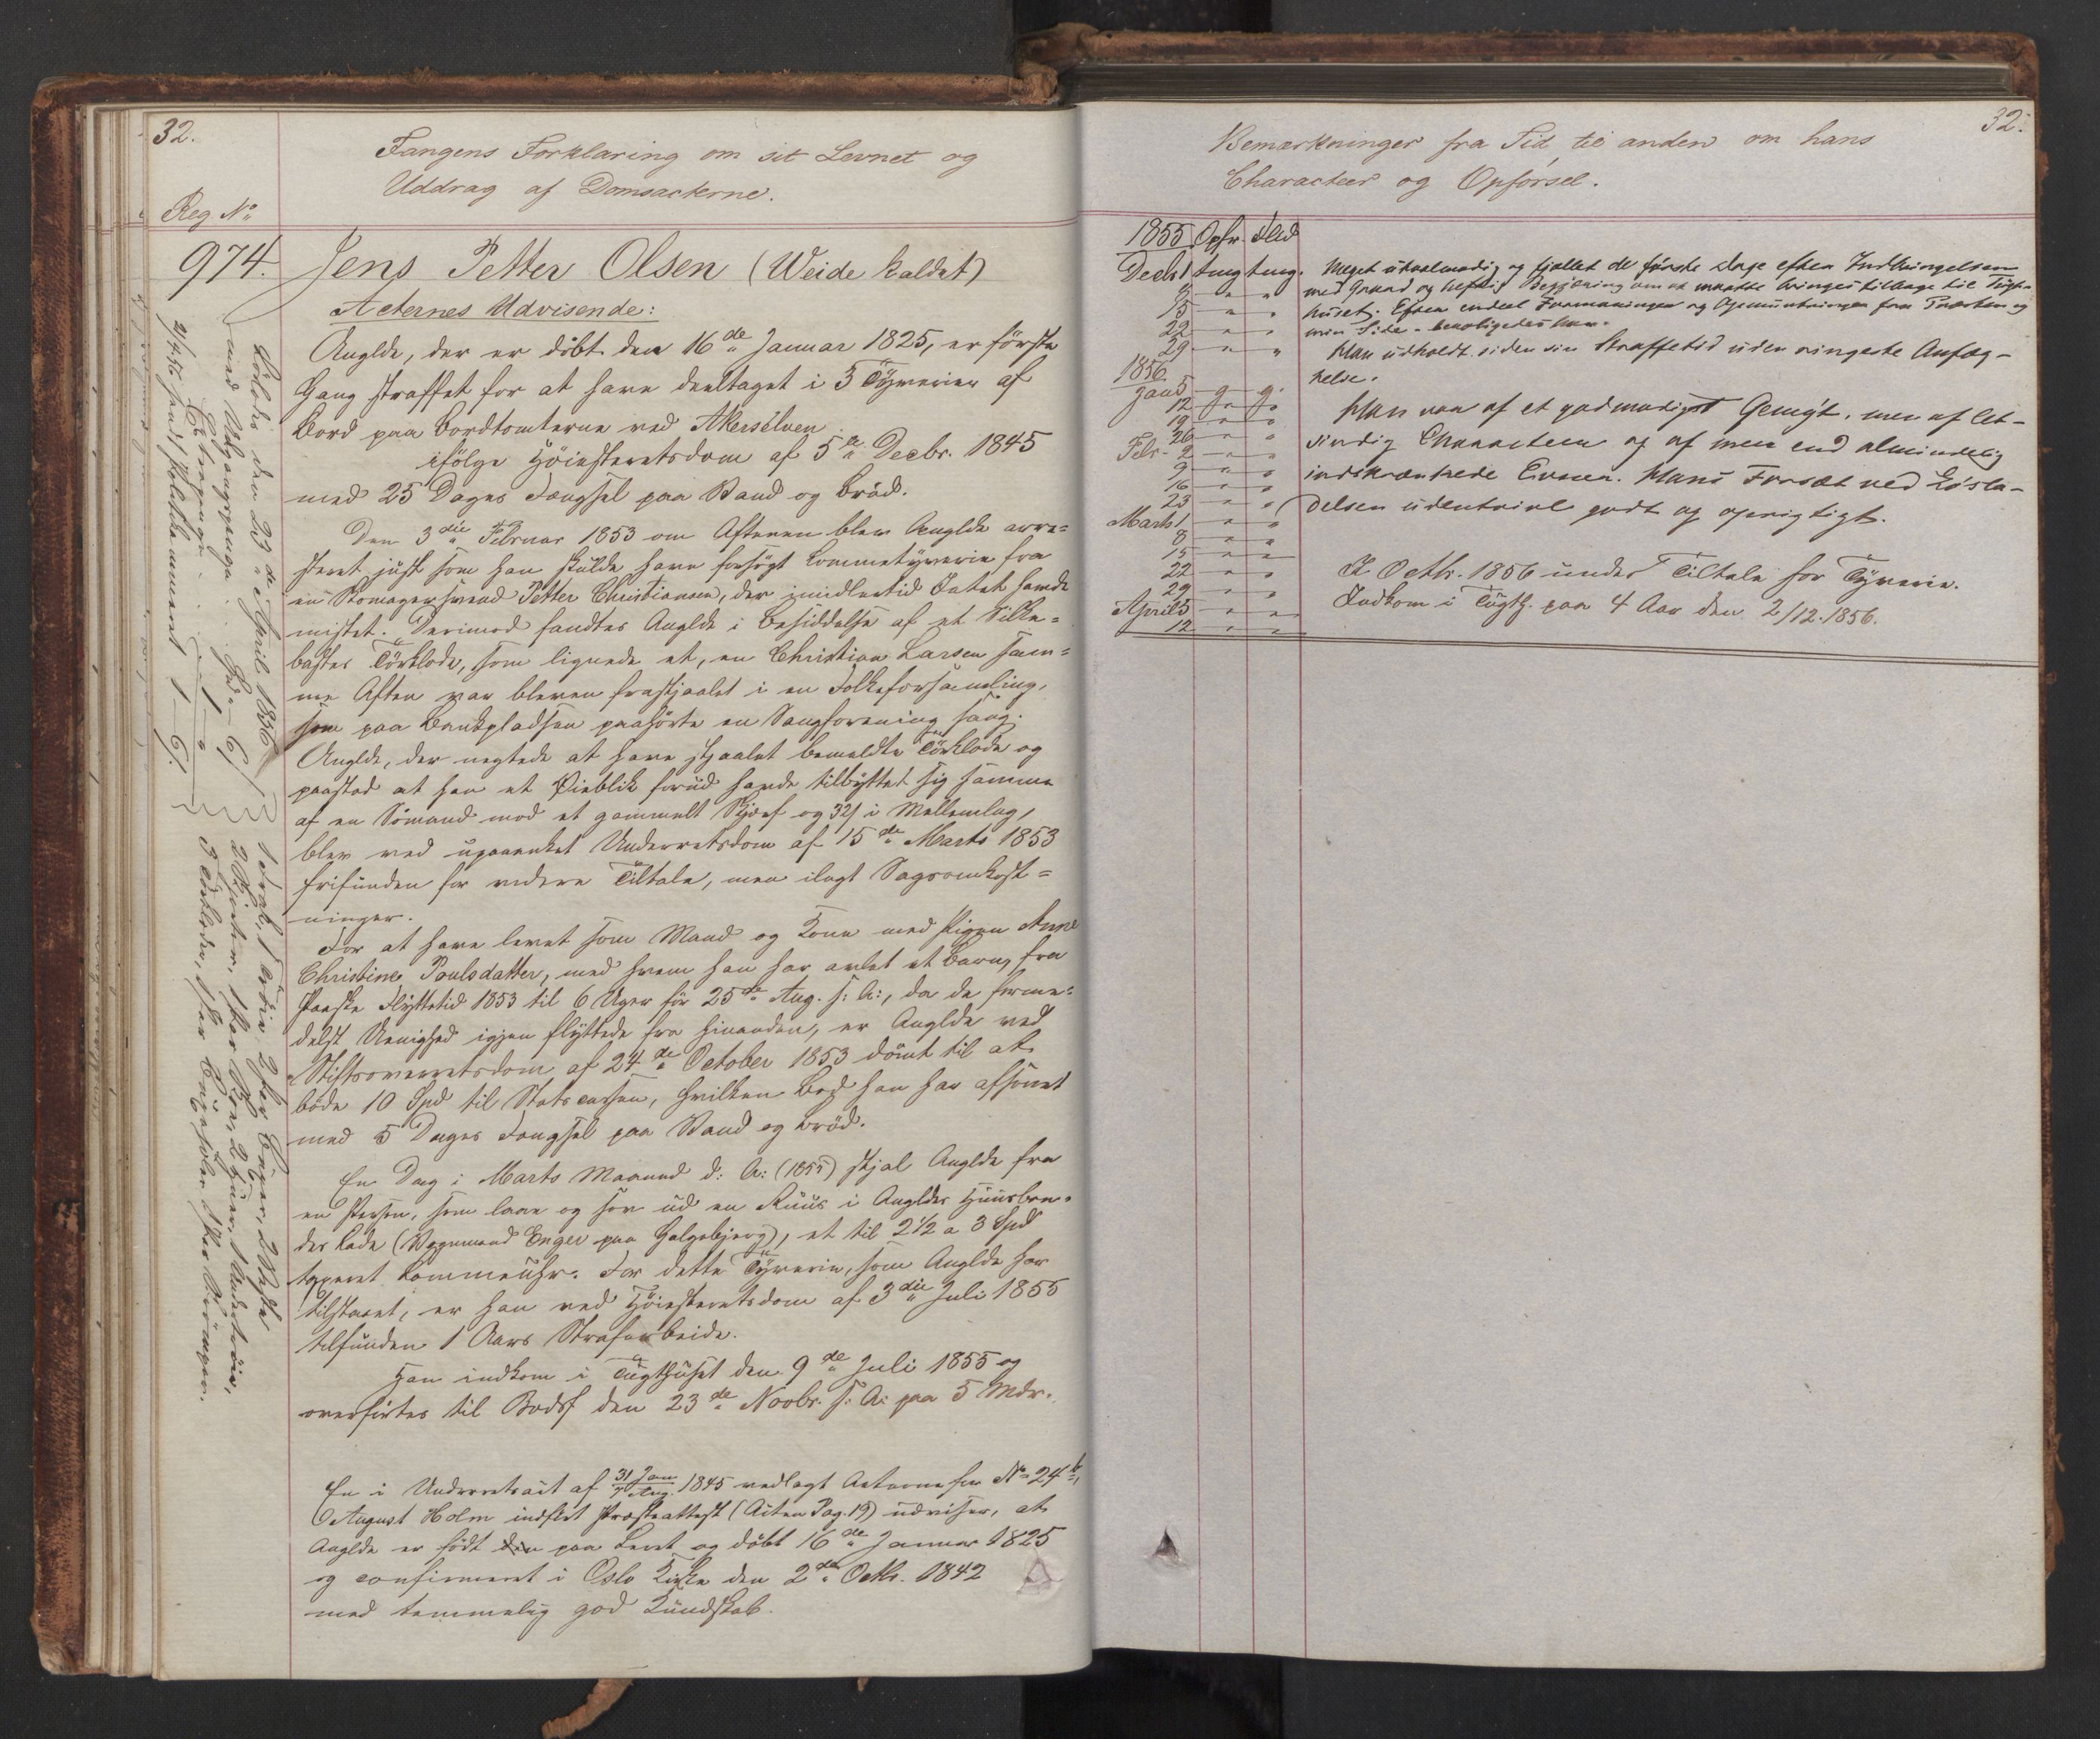 32.
Fangens Forklaring om sit Levnet og
Uddrag af Domsacterne.
Reg. No
974. Jens Petter Olsen (Weide kaldet)
Acternes Udvisende:
Anglde, der er döbt den 16de Januar 1825, er förste
Gang straffet for at have deeltaget i 3 Tyverier af
Bord paa Bordtomterne ved Akerselven
ifölge Höiesteretsdom af 5te Decbr. 1845
med 25 Dages Fængsel paa Vand og Bröd.
Den 3die Februar 1853 om Aftenen blev Anglde arre-
steret just som han skulde have forsögt Lommetyverie fra
en Skomagersvend Petter Christiansen, der imidlertid Intet havde
mistet. Derimod fandtes Anglde i Besiddelse af et Silke-
bastes Törklæde, som lignede et, en Christian Larsen sam-
me Aften var bleven frastjaalet i en Folkeforsamling,
som paa Bankpladsen paahörte en Sangforening sang.
Anglde, der negtede at have stjaalet bemeldte Törklæde og
paastod at han et Öieblik forud havde tilbyttet sig samme
af en Sömand mod et gammelt Skjerf og 32 s i Mellemlag,
blev ved upaaanket Underretsdom af 15de Marts 1853
frifunden for videre Tiltale, men ilagt Sagsomkost-
ninger.
For at have levet som Mand og Kone med Pigen Anne
Christine Poulsdatter, med hvem han har avlet et Barn, fra
Paaske Flyttetid 1853 til 6 Uger för 25de Aug. s: A:, da de forme-
delst Uenighed igjen flyttede fra hinanden, er Anglde ved
Stiftsoverretsdom af 24de October 1853 dömt til at
böde 10 Spd til Statscassen, hvilken Bod han har afsonet
med 5 Dages Fængsel paa Vand og Bröd.
En Dag i Marts Maaned d: A: (1855) stjal Anglde fra
en Person, som laae og sov ud en Ruus i Angldes Huusbon-
des Lade (Vognmand Enger paa Galgebjerg), et til 2½ a 3 Spd
taxeret Lommeuhr. For dette Tyverie, som Anglde har
tilstaaet, er han ved Höiesteretsdom af 3die Juli 1855
tilfunden 1 Aars Strafarbeide.
Han indkom i Tugthuset den 9de Juli 1855 og
overförtes til Bodsf den 23de Novbr. s: A: paa 5 Mdr.
En i Underretsact af 31 Jan/7 Aug. 1845 vedlagt Acterne for No 24 b,
August Holm indsket Præsteattest (Acten Pag. 19) udviser, at
Anglde er födt paa Leret og döbt 16de Januar 1825
og confirmeret i Oslo Kirke den 2de Octbr. 1842
med temmelig god Kundskab.
Löslodes den 23de April 1856
med Udgangspenge
Tærepenge
1 Frak, 1 Trøie, 2 Par Buxer, 2 Veste
2 Skjorter, 1 Par Skoe, 2 Huer, 1 Undertröie,
3 Törklæder, 1 Par Buxeseler, 1 Par Strömper.
32.
Bemærkninger fra Tid til anden om hans
Character og Opförsel.
1855 Opfr. Flid
Decbr 1 tmg tmg.
8 " "
15 " "
22 " "
29 " "
1856
Jan 5 g g.
12 " "
19 " "
26 " "
Febr. 2 " "
9 " "
16 " "
23 " "
Marts 1 " "
8 " "
15 " "
22 " "
29 " "
April 5 " "
12 " "
Meget utaalmodig og fjollet de første Dage efter Indbringelsen
med Graad og heftig Begjæring om at maatte bringes tilbage til Tugt-
huset. Efter endeel Formaninger og Opmuntringer fra Præsten og
min Side - beroligedes han.
Han udholdt siden sin Straffetid uden ringeste Anfæg-
telse.
Han var af et godmodigt Gemyt, men af let-
sindig Character og af mere end almindelig
indskrænkede Evner. Hans Forsæt ved Løsla-
delsen udentvivl godt og oprigtigt.
I Octbr. 1856 under Tiltale for Tyverie.
Indkom i Tugth. paa 4 Aar den 2/12. 1856.